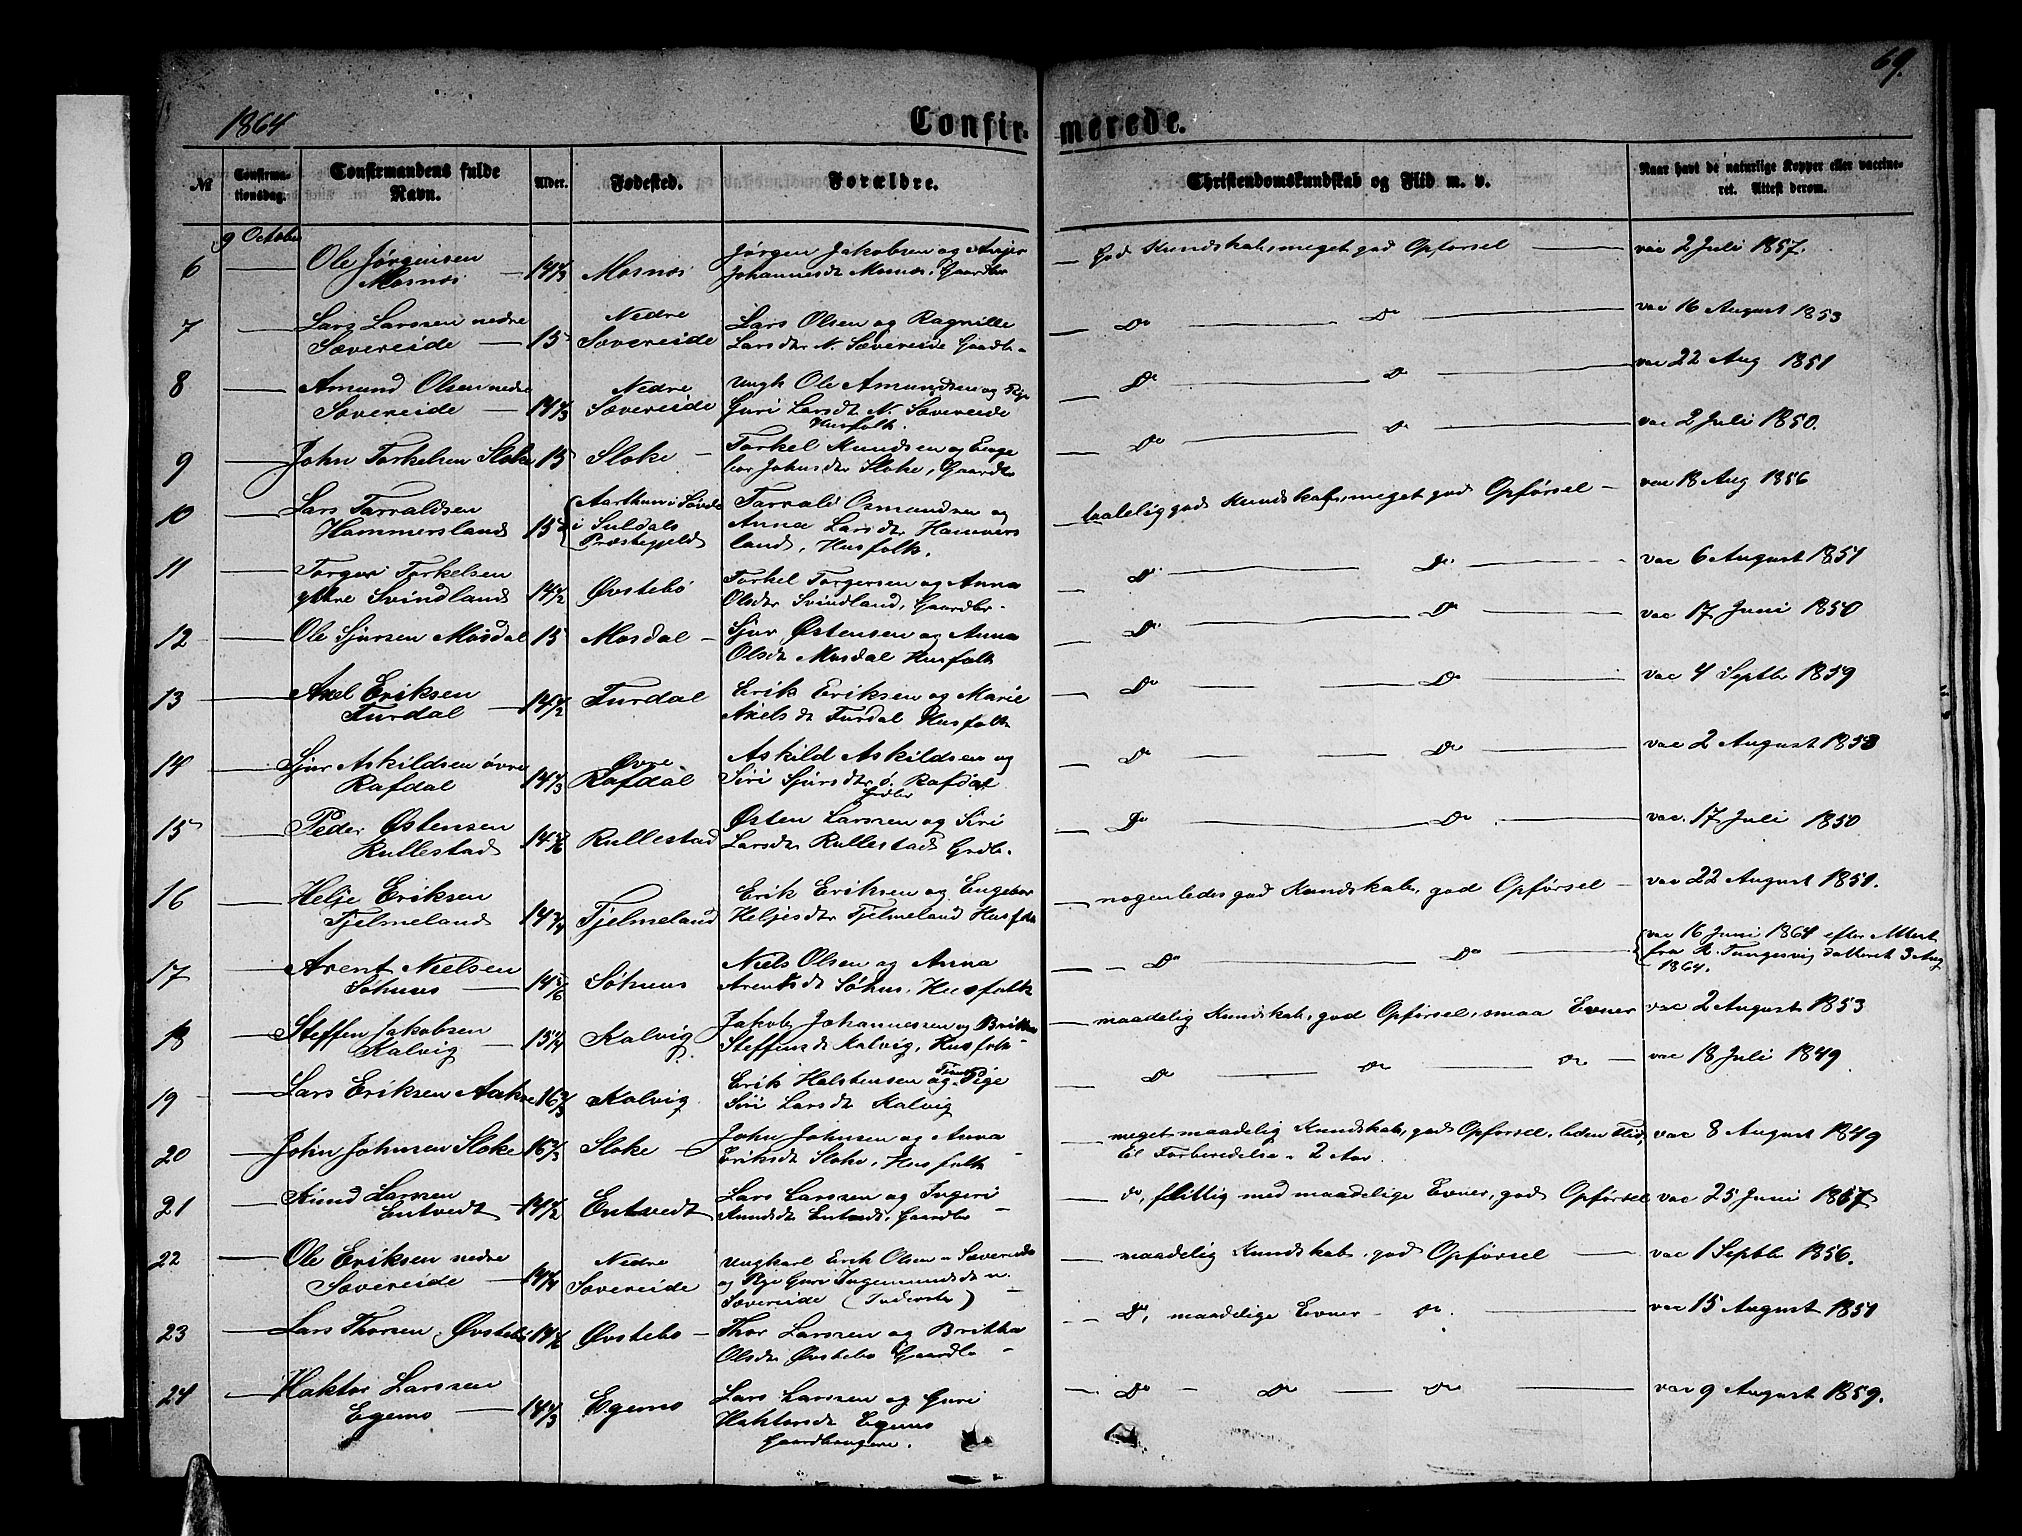 69.
1864
Confir- merede.
№
Confirma-
tionsdag.
Confirmandens fulde
Navn.
Alder.
Fødested.
Forældre.
Christendomskundskab og Flid m. v.
Naar havt de naturlige Kopper eller vaccine-
ret. Attest derom.
9 October
6 Ole Jørgensen
Mosnøs 14 1/3 Mosnøs Jørgen Jakobsen og
Johannesdt Mosnøs, Gaardbr
God Kundskab, meget god Opførsel vac 2 Juli 1857.
7 Lars Larssen nedre
Sævereide 15 Nedre
Sævereide Lars Olsen og Ragnille
Larsdtr N. Sævereide Gaardbr
Do Do vac 16 August 1853
8 Amund Olsen nedre
Sævereide 14 1/3 Nedre
Sævereide Ungk Ole Amundsen og Pige
Guri Larsdt N. Sævereide
Husfolk.
Do Do vac 22 Aug 1851
9 John Torkelsen Sloke 15 Sloke Torkel Knudsen og Inge
bor Johnsdtr Sloke, Gaardbr
Do Do vac 2 Juli 1850.
10 Lars Tarraldsen
Hammersland 15 Aarthun i Søvde
i Suldals
Præstegjeld Tarrald Osmundsen og
Anna Larsdtr Hammers
land, Husfolk.
taalelig god Kundskab, meget god Opførsel vac 18 Aug 1856
11 Torger Torkelsen
ytre Svindland 14 1/2 Øvstebø Torkel Torgersen og Anna
Olsdtr Svindland, Gaardbr
Do Do vac 6 August 1851
12 Ole Sjursen Mosdal 15 Mosdal Sjur Østensen og Anna
Olsdt Mosdal Husfolk
Do Do vac 17 Juni 1850
13 Axel Eriksen
Furdal 14 1/2 Furdal Erik Eriksen og Marie
Axelsdt Furdal Husfolk
Do Do vac 4 Septbr 1859
14 Sjur Askildsen øvre
Rafdal 14 1/3 Øvre
Rafdal Askild Askildsen og
Siri Sjursdtr ø. Rafdal
Grdbr
Do Do vac 2 August 1853
15 Peder Østensen
Rullestad 14 5/6 Rullestad Østen Larssen og Siri
Larsdtr Rullestad Grdbr.
Do Do vac 17 Juli 1850
16 Helje Eriksen
Tjelmeland 14 3/4 Tjelmeland Erik Eriksen og Engebor
Heljesdtr Tjelmeland Husfolk
nogenledes god Kundskab, god Opførsel vac 22 August 1851.
17 Arent Nielsen
Søhuus 14 5/6 Søhuus Niels Olsen og Anna
Arentsdt Søhus, Husfolk
Do Do vac 16 Juni 1864 efter Attest
fra R. Tungesvig datteret 3 Aug
1864.
18 Steffen Jakobsen
Kalvig 15 1/4 Kalvig Jakob Johannessen og Britha
Steffensdt Kalvig, Husfolk
maadelig Kundskab, god Opførsel, smaa Evner vac 2 August 1853
19 Lars Eriksen Aakre 16 2/3 Kalvig Erik Halstensen og Pige
Siri Larsdt Kalvig
Do Do Do vac 18 Juli 1849
20 John Johnsen Sloke 16 1/3 Sloke John Johnsen og Anna
Eriksdt Sloke, Husfolk
meget maadelig Kundskab, god Opførsel, liden Flid,
til Forberedelse 2 Aar. vac 8 August 1849
21 Knud Larssen
Entvedt 14 1/2 Entvedt Lars Larssen og Ingeri
Knudsdt Entvedt, Gaardbr
do, flittig med maadelige Evner, god Opførsel vac 25 Juni 1857
22 Ole Eriksen nedre
Sævereide 14 1/4 Nedre
Sævereide Ungkarl Erik Olsen Sævereide
og Pige Guri Ingemundsdt n.
Sævereide (Inderster)
maadelig Kundskab, god Opførsel vac 1 Septbr 1856.
23 Lars Thorsen Øvstebø 14 1/2 Øvstebø Thor Larssen og Britha
Olsdtr Øvstebø Gaardbr
Do, maadelige Evner do. vac 15 August 1851
24 Haktor Larssen
Egemo 14 1/3 Egemo Lars Larssen og Guri
Haktorsdt Egemo
Gaardbrugere.
Do Do Do vac 9 August 1859.